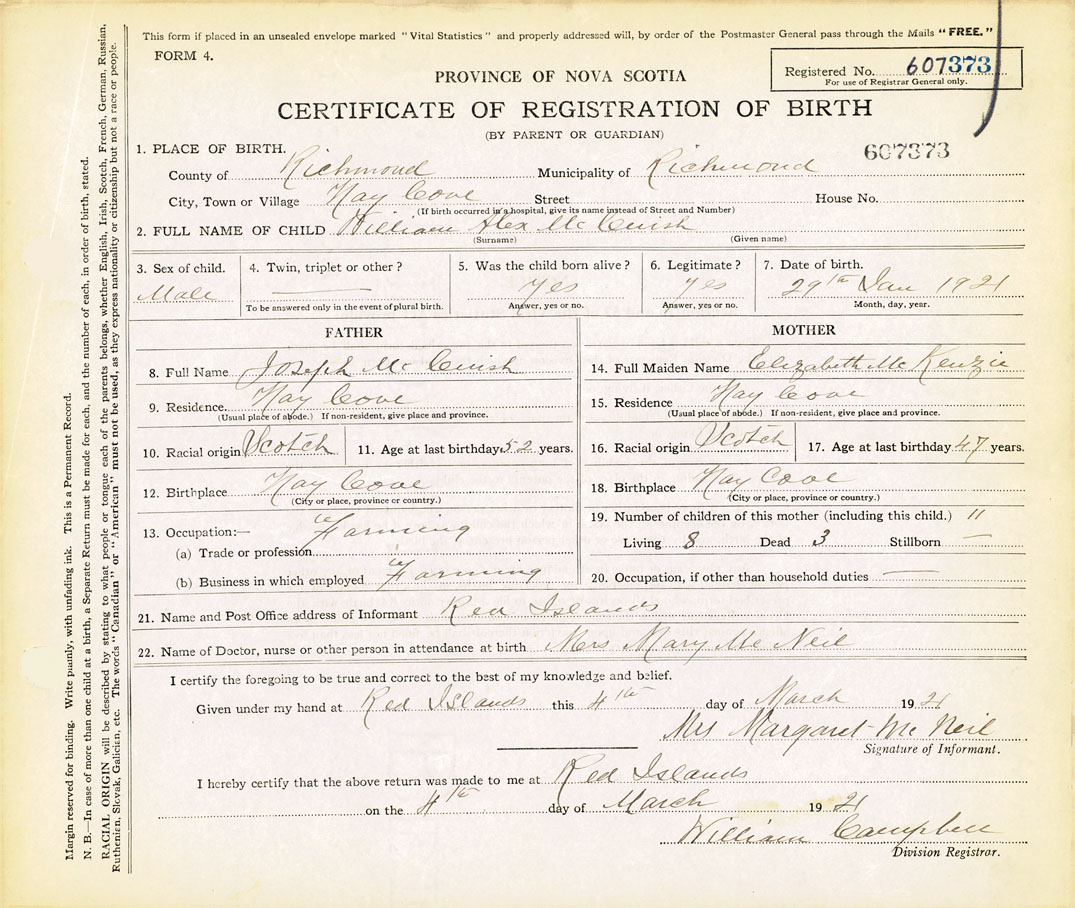 This form if placed in an unsealed envelope marked "Vital Statistics" and properly addressed will, by order of the Postmaster General pass through the Mails "FREE."
FORM 4.
Registered No. 607373
For use of Registrar General only.
PROVINCE OF NOVA SCOTIA
CERTIFICATE OF REGISTRATION OF BIRTH
(BY PARENT OR GUARDIAN)
607373
1. PLACE OF BIRTH.
County of Richmond Municipality of Richmond
City, Town or Village Hay Cove Street House No.
(If birth occurred in a hospital, give its name instead of Street and Number)
2. FULL NAME OF CHILD William Alex McCuish
(Surname) (Given name)
3. Sex of child. 4. Twin, triplet or other? 5. Was the child born alive? 6. Legitimate? 7. Date of birth.
Male yes yes 29th Jan 1921
To be answered only in the event of plural birth. Answer, yes or no. Answer, yes or no. Month, day, year.
FATHER
8. Full Name Joseph McCuish
9. Residence. Hay Cove
(Usual place of abode.) If non-resident, give place and province.
10. Racial origin Scotch 11. Age at last birthday 52 years.
12. Birthplace Hay Cove
(City or place, province or country.)
13. Occupation:— Farming
(a) Trade or profession
(b) Business in which employed Farming
MOTHER
14. Full Maiden Name Elizabeth McKenzie
15. Residence Hay Cove
(Usual place of abode.) If non-resident, give place and province.
16. Racial origin Scotch 17. Age at last birthday 47 years.
18. Birthplace Hay Cove
(City or place, province or country.)
19. Number of children of this mother (including this child.) 11
Living 8 Dead 3 Stillborn —
20. Occupation, if other than household duties —
21. Name and Post Office address of Informant Red Islands
22. Name of Doctor, nurse or other person in attendance at birth Mrs Mary McNeil
I certify the foregoing to be true and correct to the best of my knowledge and belief.
Given under my hand at Red Islands this 4th day of March 1921
Mrs Margaret McNeil
Signature of Informant.
I hereby certify that the above return was made to me at Red Islands
on the 4th day of March 1921
William Campbell
Division Registrar.
Margin reserved for binding. Write plainly, with unfading ink. This is a Permanent Record.
N. B.—In case of more than one child at a birth, a Separate Return must be made for each, and the number of each, in order of birth, stated.
RACIAL ORIGIN will be described by stating to what people or tongue each of the parents belongs, whether English, Irish, Scotch, French, German, Russian,
Ruthenian, Slovak, Galician, etc. The words "Canadian" or "American" must not be used, as they express nationality or citizenship but not a race or people.